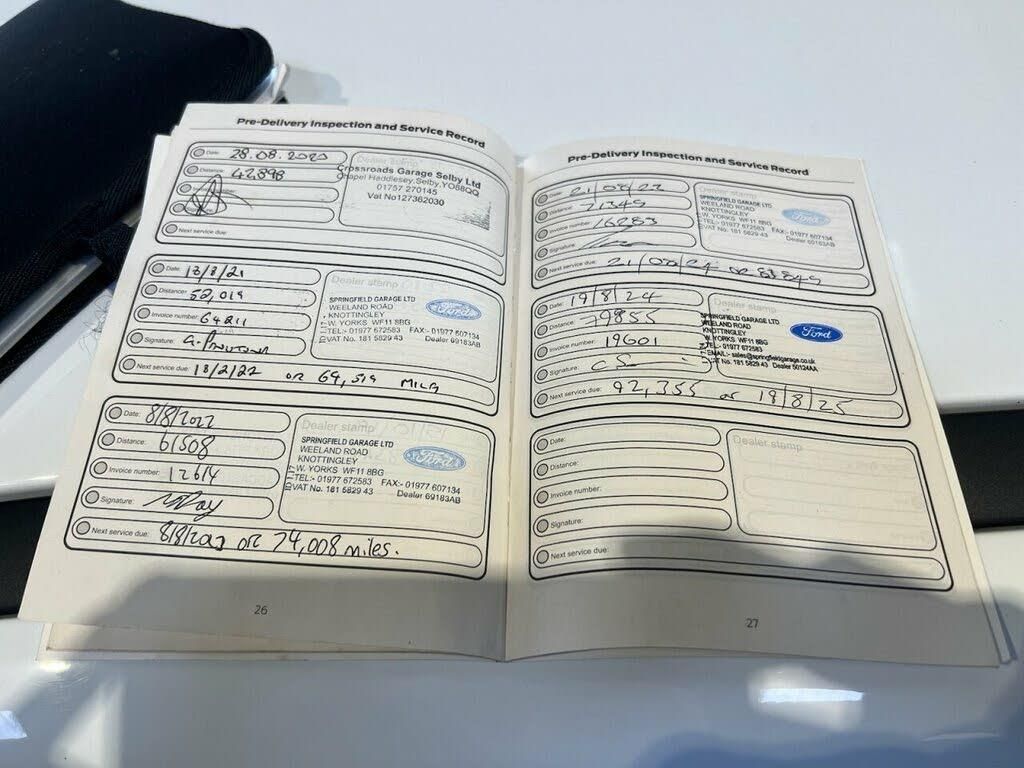 Pre-Delivery Inspection and Service Record
Date: 28.08.2020
Distance: 42898
Next service due:
Dealer stamp
Crossroads Garage Selby Ltd
Chapel Haddlesey,Selby,YO88QQ
01757 270145
Vat No127362030
Date: 18/8/21
Distance: 52,019
Invoice number: 64211
Signature:
Next service due: 18/2/22 or 64,519 MILES
Dealer stamp
SPRINGFIELD GARAGE LTD
WEELAND ROAD
KNOTTINGLEY
W. YORKS WF11 8BG
TEL:- 01977 672583 FAX:- 01977 607134
VAT No. 181 5829 43 Dealer 69183AB
Ford
Date: 8/8/2022
Distance: 61508
Invoice number: 12614
Signature:
Next service due: 8/8/2023 or 74,008 miles.
Dealer stamp
SPRINGFIELD GARAGE LTD
WEELAND ROAD
KNOTTINGLEY
W. YORKS WF11 8BG
TEL:- 01977 672583 FAX:- 01977 607134
VAT No. 181 5829 43 Dealer 69183AB
Ford
26
Pre-Delivery Inspection and Service Record
Date:
Distance: 71349
Invoice number: 16283
Signature:
Next service due: 21/08/24 or 83849
Dealer stamp
SPRINGFIELD GARAGE LTD
WEELAND ROAD
KNOTTINGLEY
W. YORKS WF11 8BG
TEL:- 01977 672583 FAX:- 01977 607134
VAT No. 181 5829 43
Ford
Date: 19/8/24
Distance: 79855
Invoice number: 19601
Signature:
Next service due: 92,355 or 19/8/25
Dealer stamp
SPRINGFIELD GARAGE LTD
WEELAND ROAD
KNOTTINGLEY
W. YORKS WF11 8BG
TEL:- 01977 672583
EMAIL:- sales@springfieldgarage.co.uk
VAT No. 181 5829 43 Dealer 50124AA
Ford
Date:
Distance:
Invoice number:
Signature:
Next service due:
Dealer stamp
27